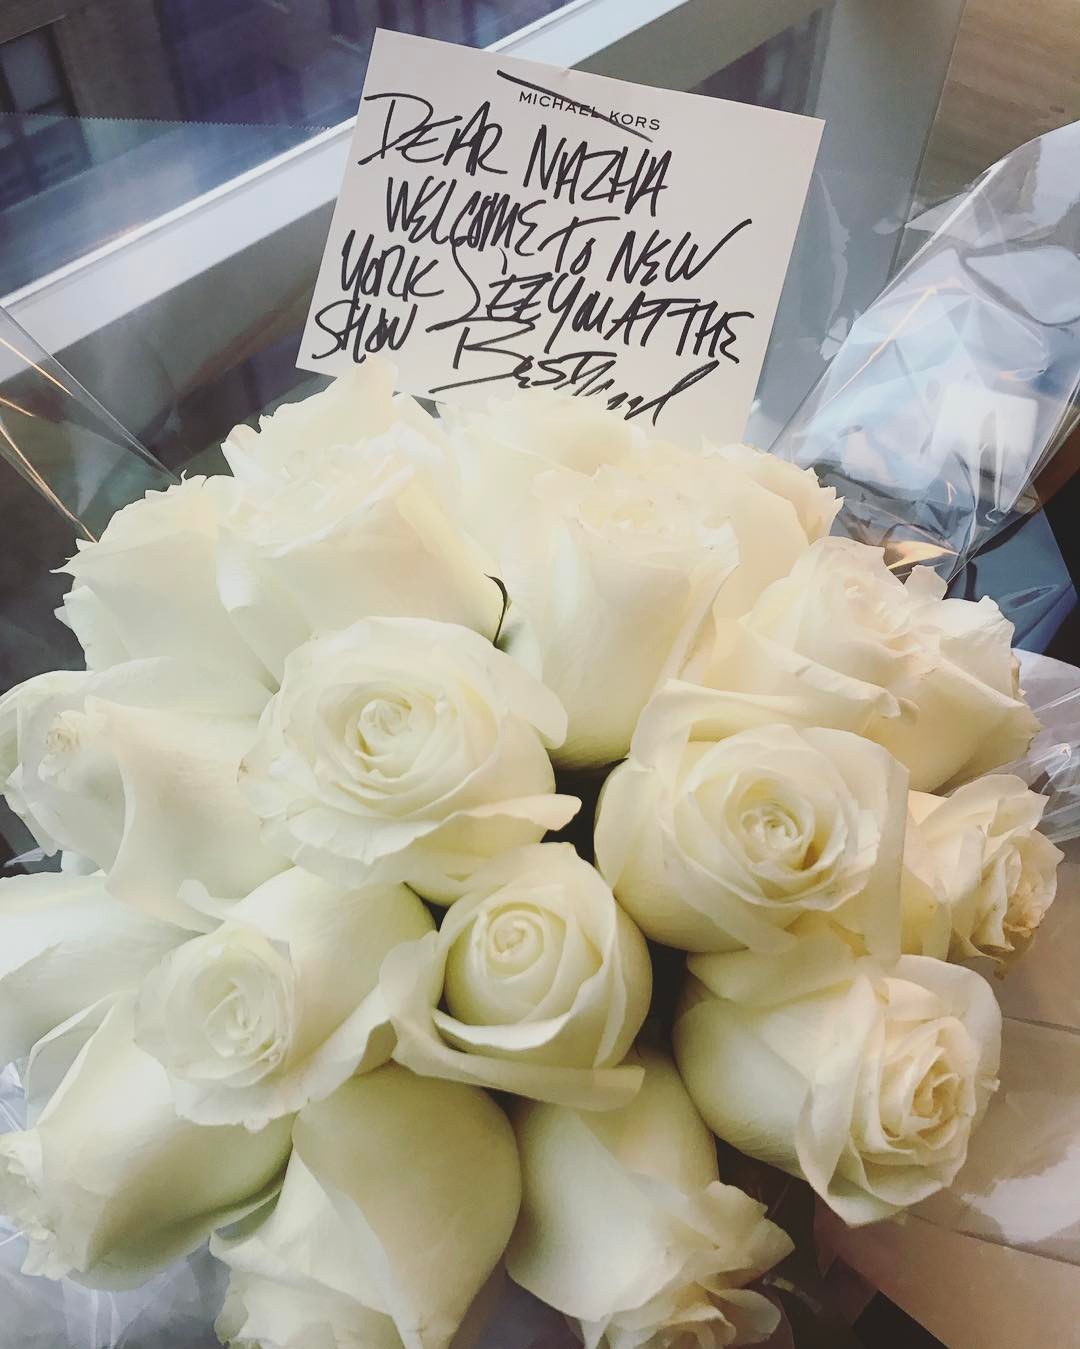 MICHAEL KORS
DEAR NAZHA
WELCOME TO NEW
YORK SEE YOU AT THE
SHOW
BEST